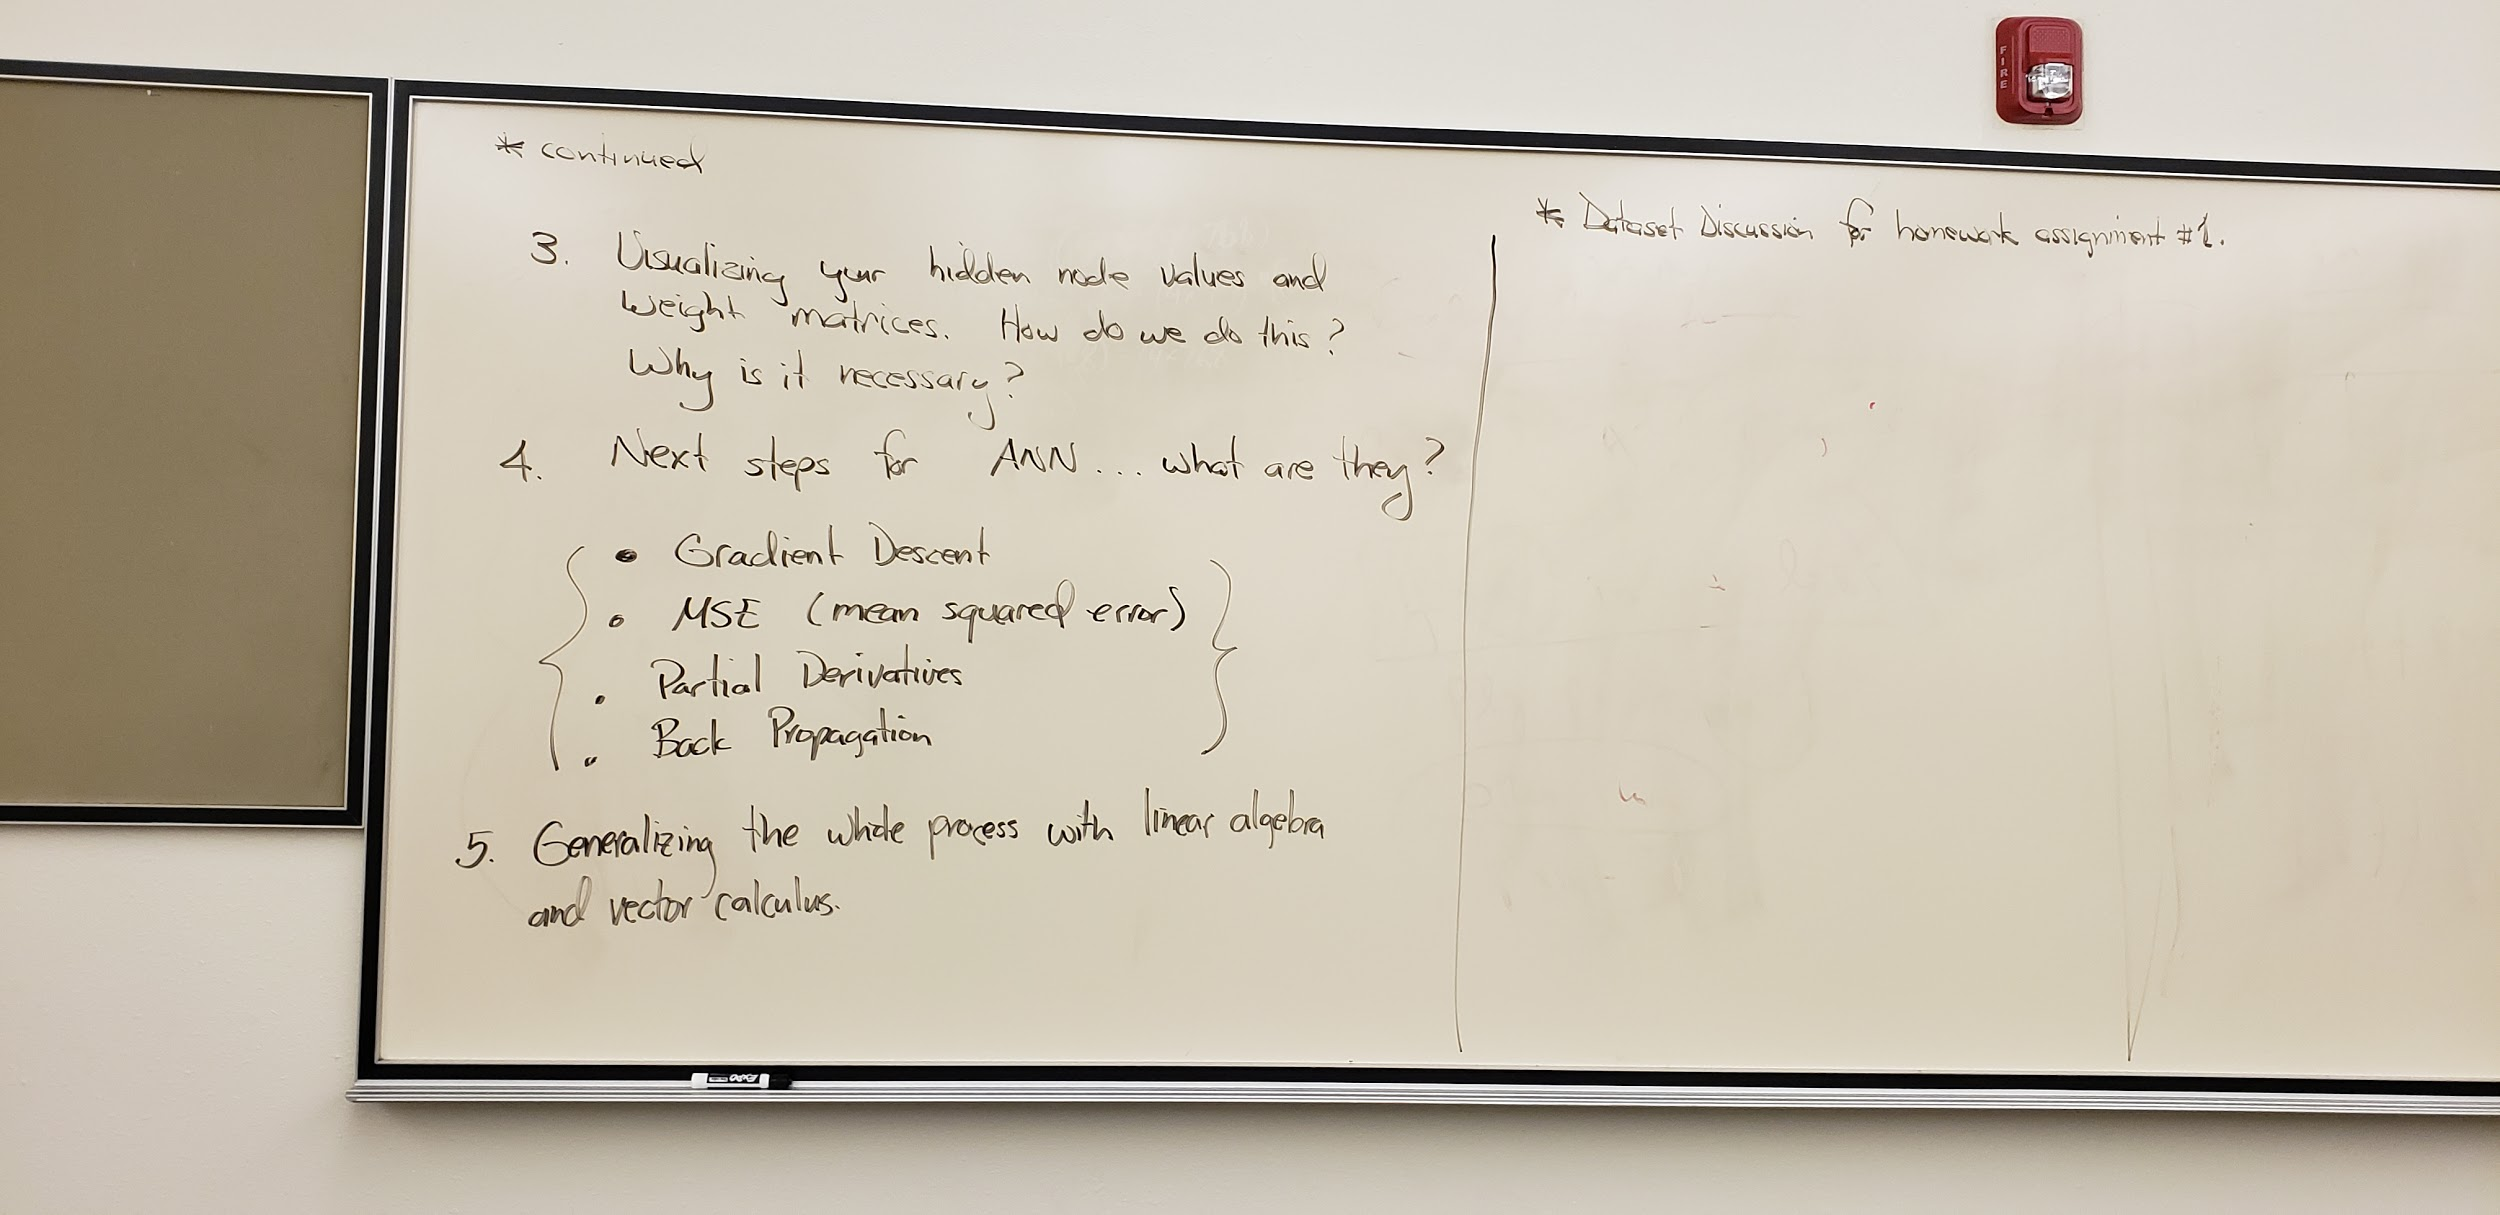 * continued
3. Visualizing your hidden node values and
weight matrices. How do we do this?
Why is it necessary?
4. Next steps for ANN... what are they?
• Gradient Descent
• MSE (mean squared error)
• Partial Derivatives
• Back Propagation
5. Generalizing the whole process with linear algebra
and vector calculus.
* Dataset Discussion for homework assignment #1.
FIRE
EXPO